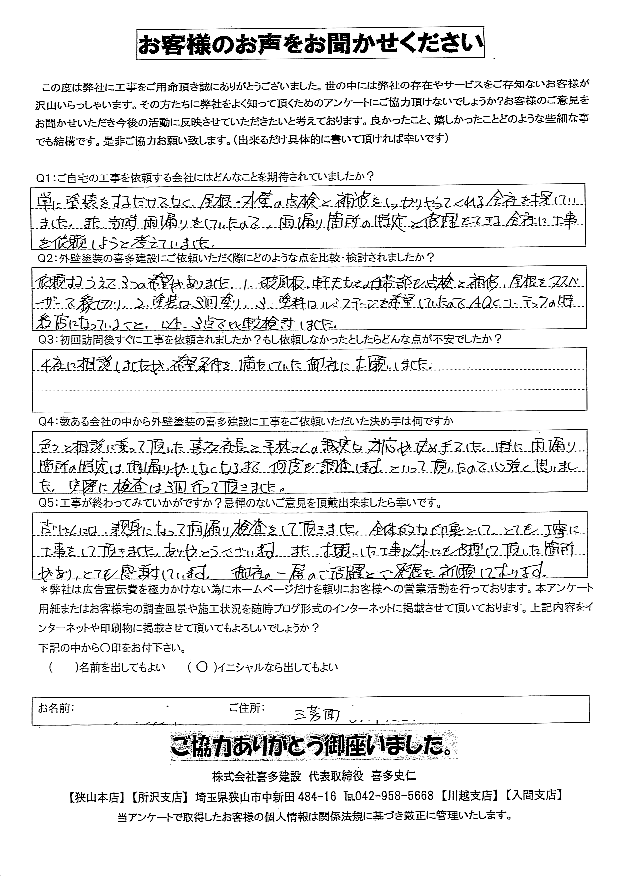 お客様のお声をお聞かせください
この度は弊社に工事をご用命頂き誠にありがとうございました。世の中には弊社の存在やサービスをご存知ないお客様が
沢山いらっしゃいます。その方たちに弊社をよく知って頂くためのアンケートにご協力頂けないでしょうか?お客様のご意見を
お聞かせいただき今後の活動に反映させていただきたいと考えております。良かったこと、嬉しかったことどのような些細な事
でも結構です。是非ご協力お願い致します。(出来るだけ具体的に書いて頂ければ幸いです)
Q1:ご自宅の工事を依頼する会社にはどんなことを期待されていましたか?
単に塗装をするだけでなく、屋根・外壁の点検と補修をしっかりやってくれる会社を探してい
ました。また、雨漏りをしていたので、雨漏り箇所の特定と修理ができる会社に工事
を依頼しようと考えていました。
Q2:外壁塗装の喜多建設にご依頼いただく際にどのような点を比較・検討されましたか?
依頼するうえで3つの希望がありました。1.破風板、軒天などの付帯部の点検と補修、屋根をタスペ
ーサーで縁切り、2.塗装は3回塗り、3.塗料は
になっていること、以上、3点で比較検討しました。
Q3:初回訪問後すぐに工事を依頼されましたか?もし依頼しなかったとしたらどんな点が不安でしたか?
4社に相談しましたが、希望条件を満たしていた御社にお願いしました。
Q4:数ある会社の中から外壁塗装の喜多建設に工事をご依頼いただいた決め手は何ですか
色々と相談に乗って頂いた喜多社長と さんの誠実な対応が決め手でした。特に雨漏り
箇所の特定は雨漏りがしなくなるまで何度も調査します。といって頂いたので心強く思いまし
た。実際に検査は3回行って頂きました。
Q5:工事が終わってみていかがですか?忌憚のないご意見を頂戴出来ましたら幸いです。
さんには、親身になって雨漏り検査をして頂きました。全体的な印象として、とても丁寧に
工事をして頂きました。ありがとうございます。また、お願いした工事以外にも修理して頂いた箇所
があり、とても感謝しています。御社の一層のご活躍とご発展を祈願しております。
*弊社は広告宣伝費を極力かけない為にホームページだけを頼りにお客様への営業活動を行っております。本アンケート
用紙またはお客様宅の調査風景や施工状況を随時ブログ形式のインターネットに掲載させて頂いております。上記内容をイ
ンターネットや印刷物に掲載させて頂いてもよろしいでしょうか?
下記の中から〇印をお付下さい。
( )名前を出してもよい (〇)イニシャルなら出してもよい
お名前: ご住所: 三芳町
ご協力ありがとう御座いました。
株式会社喜多建設 代表取締役 喜多史仁
【狭山本店】【所沢支店】 埼玉県狭山市中新田484-16 ℡042-958-5668 【川越支店】【入間支店】
当アンケートで取得したお客様の個人情報は関係法規に基づき厳正に管理いたします。